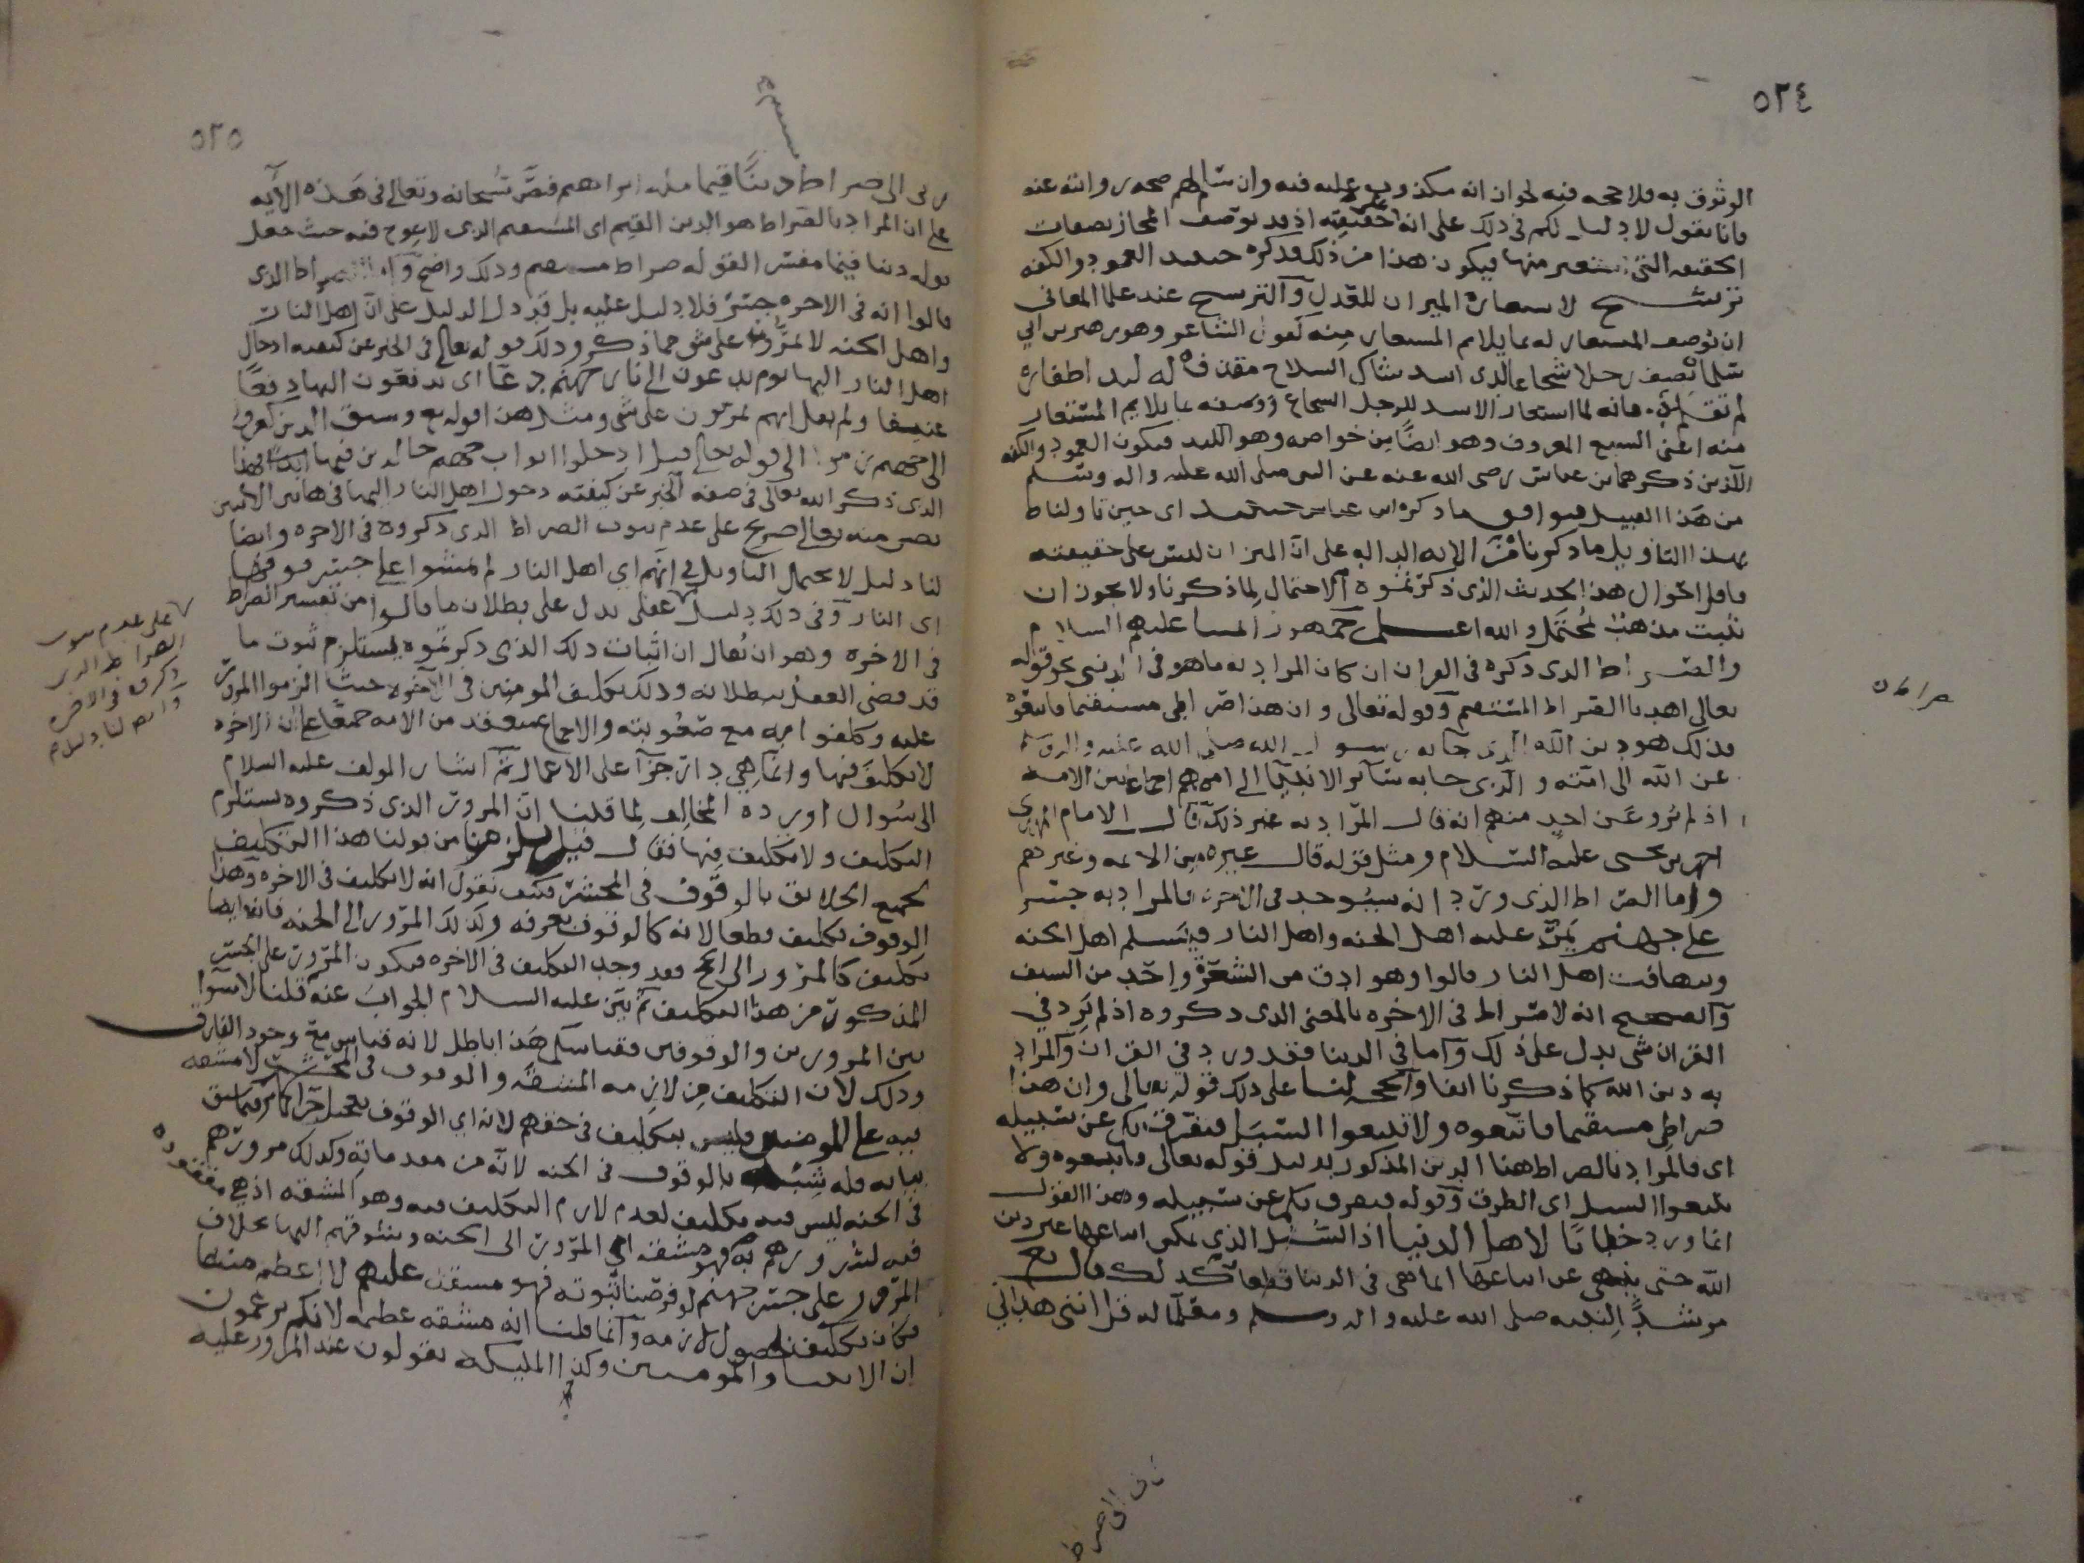 ٥٢٤
الوثوق به فلا حجه فيه لجواز انه مكذوب عليه فيه وان سلم لهم صحه روايته عنه
فانا نقول لا دليل لكم في ذلك على انه حقيقه اذ قد توصف المجاز بصفات
الحقيقه التي استعير منها فيكون هذا من ذلك وذكره حينئذ العمود والكفه
ترشيح لاستعاره الميزان للعدل والترشيح عند علما المعاني
ان توصف المستعار له بما يلايم المستعار منه كقول الشاعر وهو زهير بن ابي
سلما يصف رجلا شجاعا لدى اسد شاكي السلاح مقذف له لبد اظفاره
لم تقلم فانه لما استعار الاسد للرجل الشجاع وصفه بما يلايم المستعار
منه اعني السبع المعروف وهو ايضا من خواصه وهو اللبد فيكون العمود والكفه
اللذين ذكرهما بن عباس رضي الله عنه عن النبي صلى الله عليه واله وسلم
من هذا القبيل فيوافق ما ذكره ابن عباس حينئذ اي حين تاولناه
بهذا التاويل ما ذكرنا من الايه الداله على ان الميزان ليس على حقيقته
فاقل احوال هذا الحديث الذي ذكرتموه الاحتمال لما ذكرنا ولا يجوز ان
نثبت مذهب بمحتمل والله اعلم جمهور ائمتنا عليهم السلام
والصراط الذي ذكره في القران ان كان المراد به ما هو في الدنيا نحو قوله
تعالى اهدنا الصراط المستقيم وقوله تعالى وان هذا صراطي مستقيما فاتبعوه
فذلك هو دين الله الذي جا به رسول الله صلى الله عليه واله وسلم
عن الله الى امته والذي جا به سائر الانبيا الى اممهم اجماعا بين الامه
اذ لم يرو عن احد منهم انه قال المراد به غير ذلك قال الامام المهدي
احمد بن يحيى عليه السلام ومثل قوله قال غيره من الائمه وغيرهم
واما الصراط الذي ورد انه سيوجد في الاخره فالمراد به جسر
على جهنم يمر عليه اهل الجنه واهل النار فيسلم اهل الجنه
ويتهافت اهل النار قالوا وهو ادق من الشعره واحد من السيف
والصحيح انه لا صراط في الاخره بالمعنى الذي ذكروه اذ لم يرد في
القران شي يدل على ذلك واما في الدنيا فقد ورد في القران والمراد
به دين الله كما ذكرنا انفا والحجه لنا على ذلك قوله تعالى وان هذا
صراطي مستقيما فاتبعوه ولا تتبعوا السبل فتفرق بكم عن سبيله
اي فالمراد بالصراط هنا الدين المذكور بدليل قوله تعالى فاتبعوه ولا
تتبعوا السبل اي الطرق وقوله فتفرق بكم عن سبيله وهذا القول
انما ورد خطابا لاهل الدنيا اذ السبل الذي يمكن اتباعها غير دين
الله حتى ينهى عن اتباعها انما هي في الدنيا قطعا كذلك قال تع
مرشدا لنبيه صلى الله عليه واله وسلم ومعلما له قل انني هداني
صراط
٥٢٥
ربي الى صراط مستقيم دينا قيما مله ابراهيم فنص سبحانه وتعالى في هذه الايه
على ان المراد بالصراط هو الدين القيم اي المستقيم الذي لا عوج فيه حيث جعل
قوله دينا قيما مفسرا لقوله صراط مستقيم وذلك واضح واما الصراط الذي
قالوا انه في الاخره جسر فلا دليل عليه بل قد دل الدليل على ان اهل النار
واهل الجنه لا يمرون على شي مما ذكر وذلك قوله تعالى في الخبر عن كيفيه ادخال
اهل النار اليها يوم يدعون الى نار جهنم دعا اي يدفعون اليها دفعا
عنيفا ولم يقل انهم يمرون على شي ومثل هذا قوله تع وسيق الذين كفروا
الى جهنم زمرا الى قوله تعالى قيل ادخلوا ابواب جهنم خالدين فيها فهذا
الذي ذكر الله تعالى في صفه الخبر عن كيفيه دخول اهل النار اليها في هاتين الايتين
نص منه تعالى صريح على عدم ثبوت الصراط الذي ذكروه في الاخره وايضا
لنا دليل لا يحتمل التاويل في انهم اي اهل النار لم يمشوا على جسر فوقها
اي النار وفي ذلك دليل عقلي يدل على بطلان ما قالوا من تفسير الصراط
في الاخره وهو ان يقال ان اثبات ذلك الذي ذكرتموه يستلزم ثبوت ما
قد قضى العقل ببطلانه وذلك تكليف المومنين في الاخره حيث الزموا المرور
عليه وكلفوا به مع صعوبته والاجماع منعقد من الامه جميعا على ان الاخره
لا تكليف فيها وانما هي دار جزا على الاعمال ثم اشار المولف عليه السلام
الى سوال اورده المخالف لما قلنا ان المرور الذي ذكروه يستلزم
التكليف ولا تكليف فيها فقال قيل يلزم من قولنا هذا التكليف
لجميع الخلائق بالوقوف في المحشر فكيف نقول انه لا تكليف في الاخره وهذا
الوقوف تكليف قطعا لانه كالوقوف بعرفه وكذلك المرور الى الجنه فانه ايضا
تكليف كالمرور الى الحج فقد وجب التكليف في الاخره فيكون المرور على الجسر
المذكور من هذا التكليف ثم بين عليه السلام الجواب عنه قلنا لا سوا
بين المرورين والوقوفين فقياسكم هذا باطل لانه قياس مع وجود الفارق
وذلك لان التكليف من لازمه المشقه والوقوف في المحشر لا مشقه
فيه على المومنين فليس بتكليف في حقهم لانه اي الوقوف
بيانه قبله شبيه بالوقوف في الجنه لانه من مقدماته وكذلك مرورهم
في الجنه ليس فيه تكليف لعدم لازم التكليف فيه وهو المشقه اذ هي مفقوده
فيه لسرورهم به فهو مشقه اي المرور الى الجنه وشوقهم اليها بخلاف
المرور على جسر جهنم لو فرضنا ثبوته فهو مشقه عليهم لا اعظم منها
فكان تكليفا لحصول لازمه وانما قلنا انه مشقه عظيمه لانكم تزعمون
ان الانبيا والمومنين وكذا الملائكه يقولون عند المرور عليه
مستقيم
على عدم ثبوت
الصراط الذي
ذكروه في الاخره
وانه لنا دليل